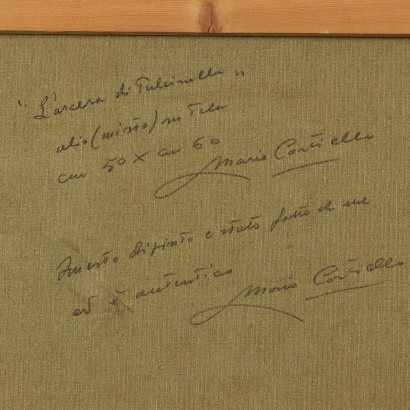 "L'ascesa di Pulcinella"
olio (misto) su tela
cm 50 X cm 60
Mario Cortiello
Questo dipinto è stato fatto da me
ed è autentico
Mario Cortiello